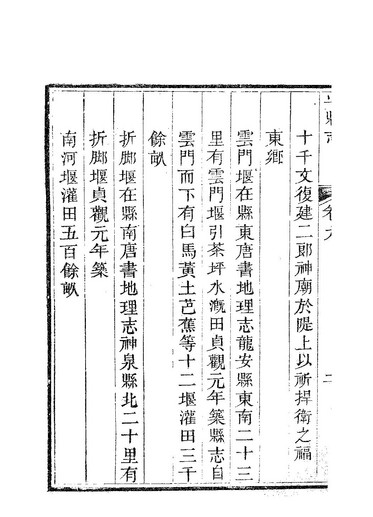 縣志 卷九 二
十千文復建二郞神廟於隄上以祈捍衛之福
東鄉
雲門堰在縣東唐書地理志龍安縣東南二十三
里有雲門堰引茶坪水溉田貞觀元年築縣志自
雲門而下有白馬黃土芭蕉等十二堰灌田三千
餘畝
折脚堰在縣南唐書地理志神泉縣北二十里有
折脚堰貞觀元年築
南河堰灌田五百餘畝